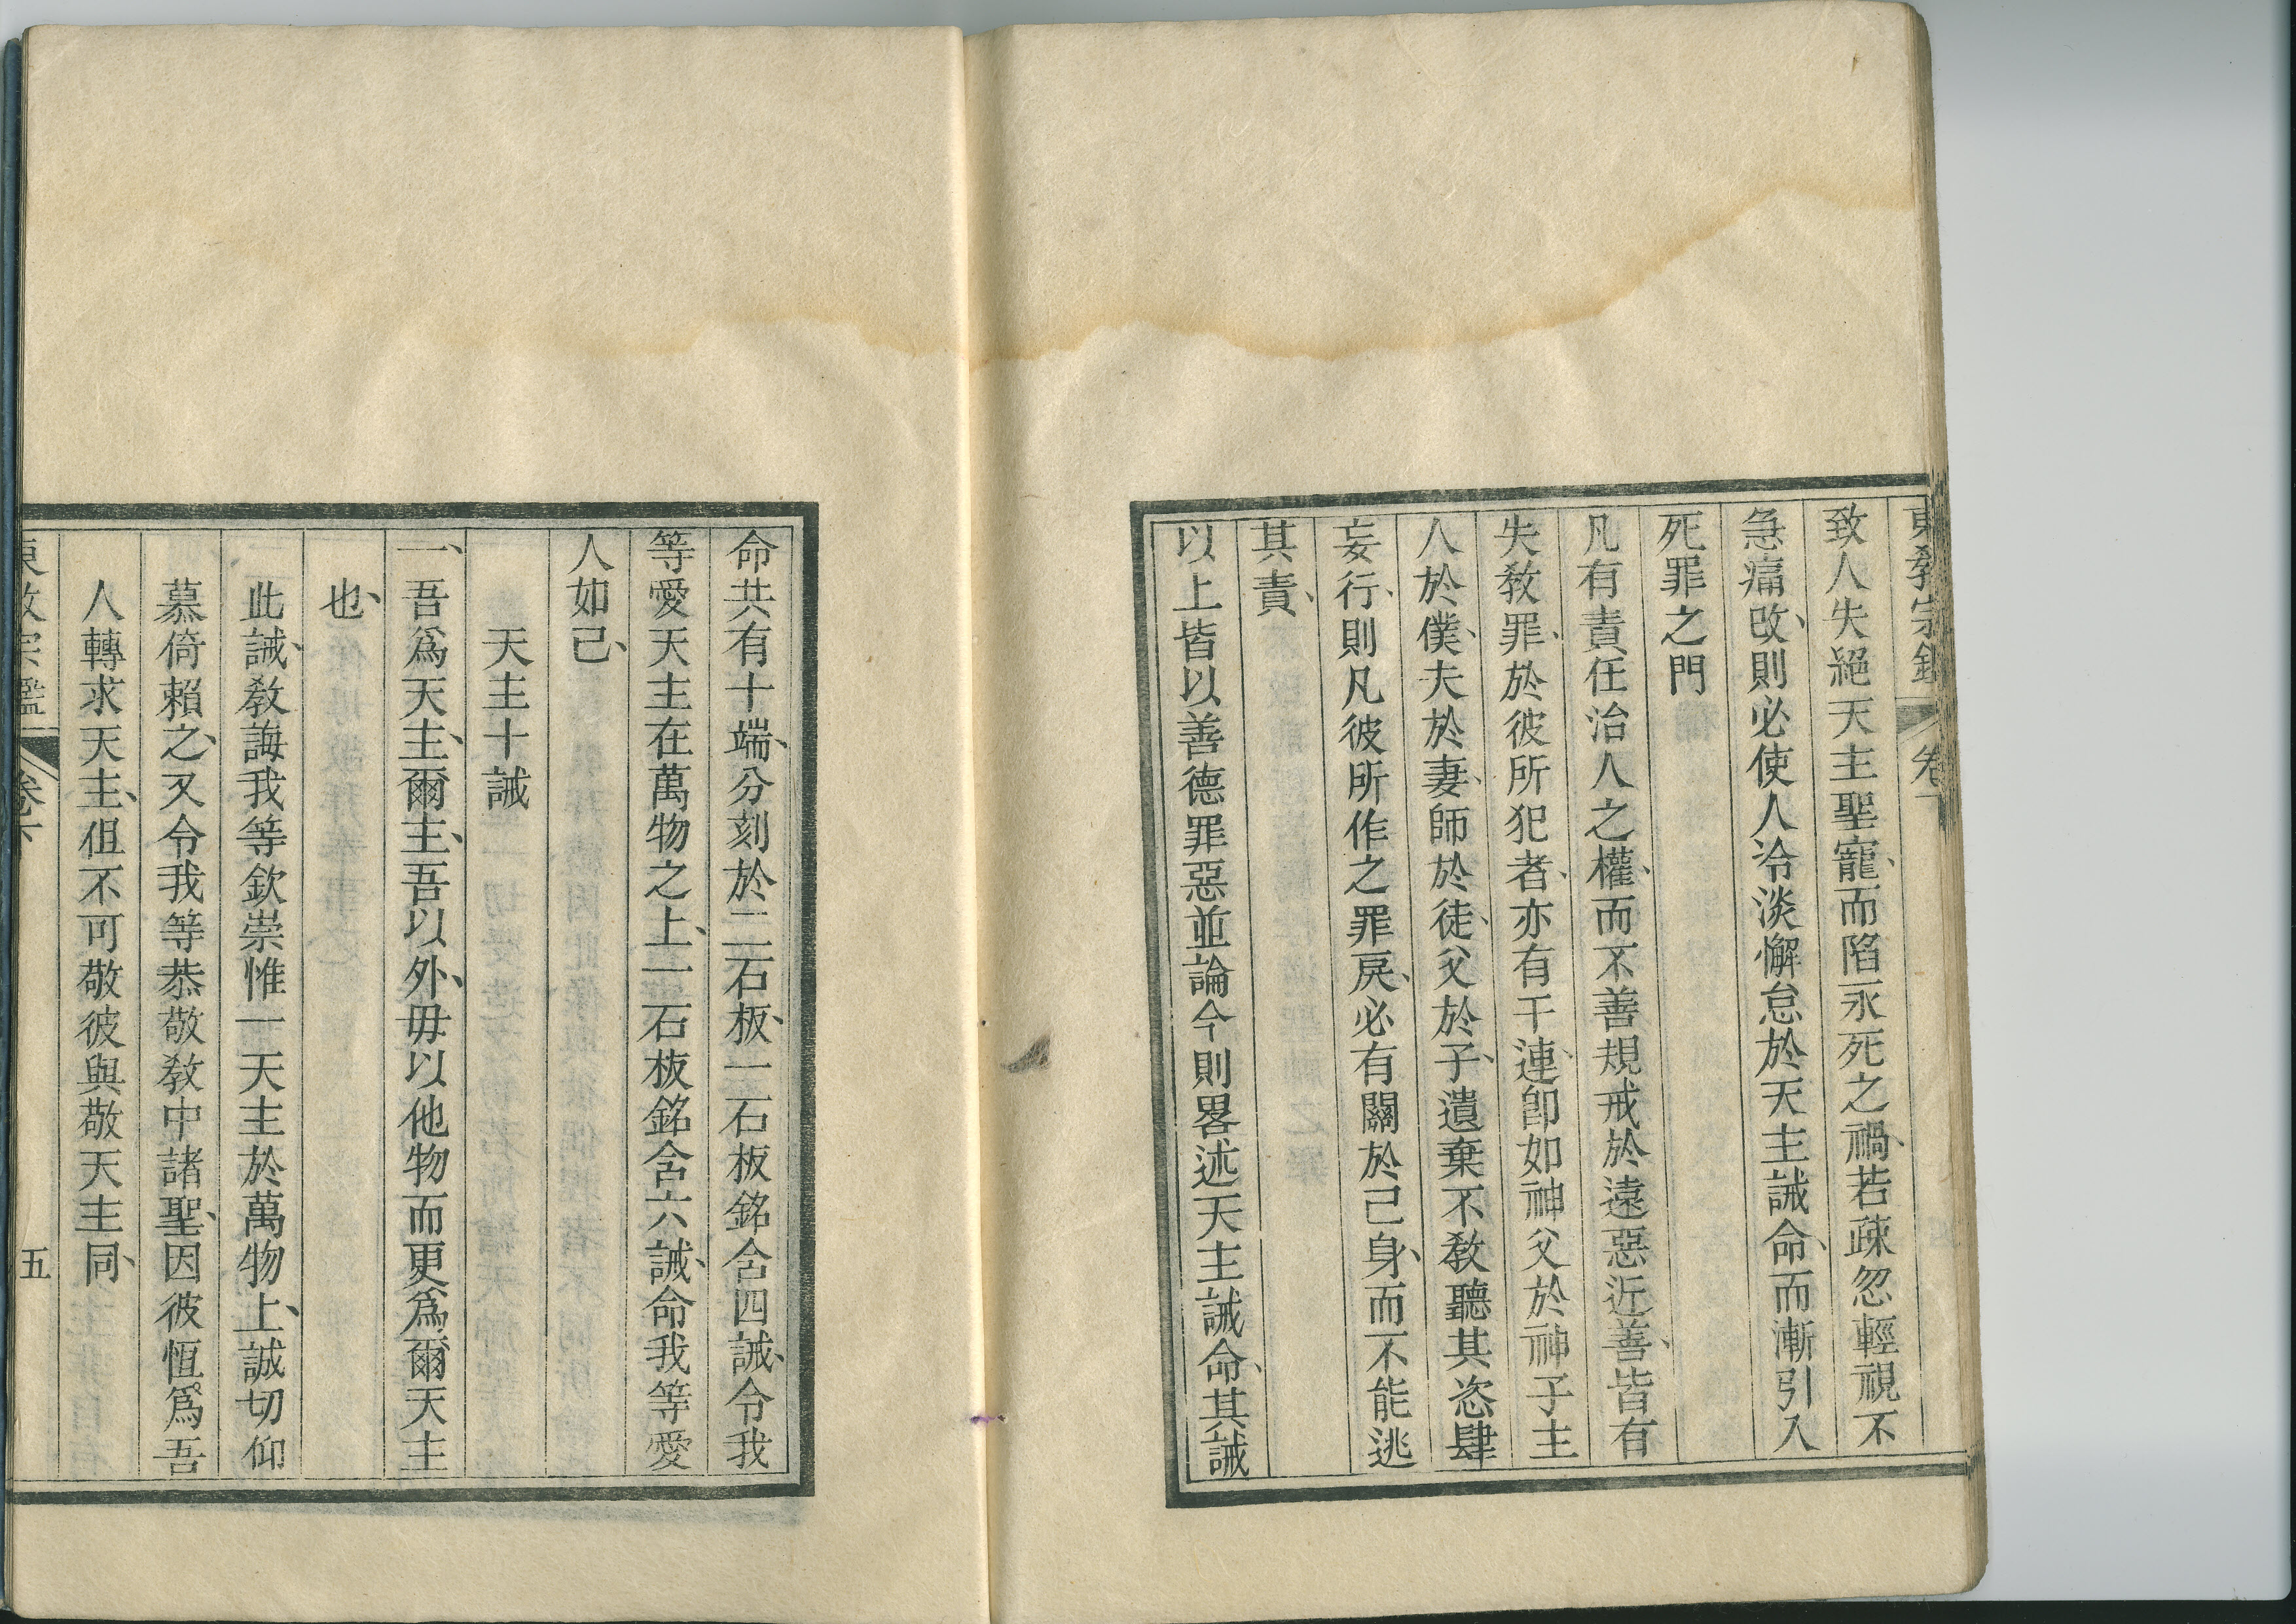 東教宗鑑 卷下
致人失絕天主聖寵、而陷永死之禍、若疎忽輕視不
急痛改、則必使人冷淡懈怠於天主誡命、而漸引入
死罪之門
凡有責任治人之權、而不善規戒於遠惡近善、皆有
失敎罪、於彼所犯者、亦有干連、卽如神父於神子主
人於僕、夫於妻、師於徒、父於子、遺棄不敎聽其恣肆
妄行、則凡彼所作之罪戾、必有關於己身、而不能逃
其責、
以上皆以善德罪惡並論今則畧述天主誡命、其誡
命共有十端、分刻於二石板、一石板銘含四誡、令我
等愛天主在萬物之上、一石板銘含六誡、命我等愛
人如己、
天主十誡
一、吾爲天主、爾主、吾以外、毋以他物而更爲爾天主
也、
此誡、敎誨我等欽崇惟一天主於萬物上、誠切仰
慕倚賴之、又令我等恭敬敎中諸聖、因彼恆爲吾
人轉求天主、但不可敬彼與敬天主同、
東教宗鑑 卷下 五